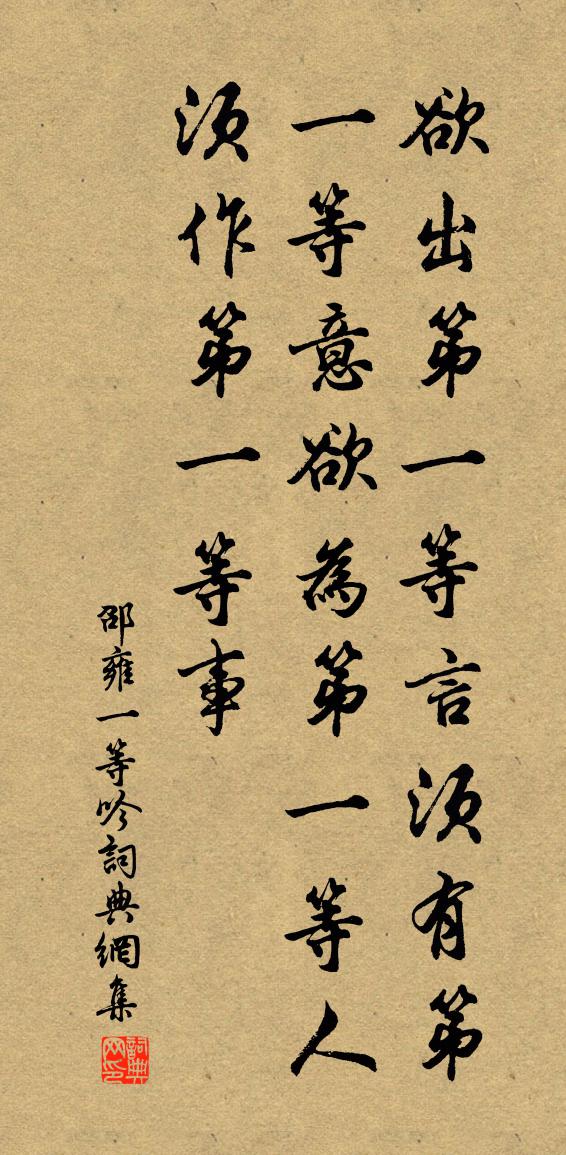 欲出第一等言須有第
一等意欲為第一等人
須作第一等事
邵雍一等吟詞典網集
詞典
网印